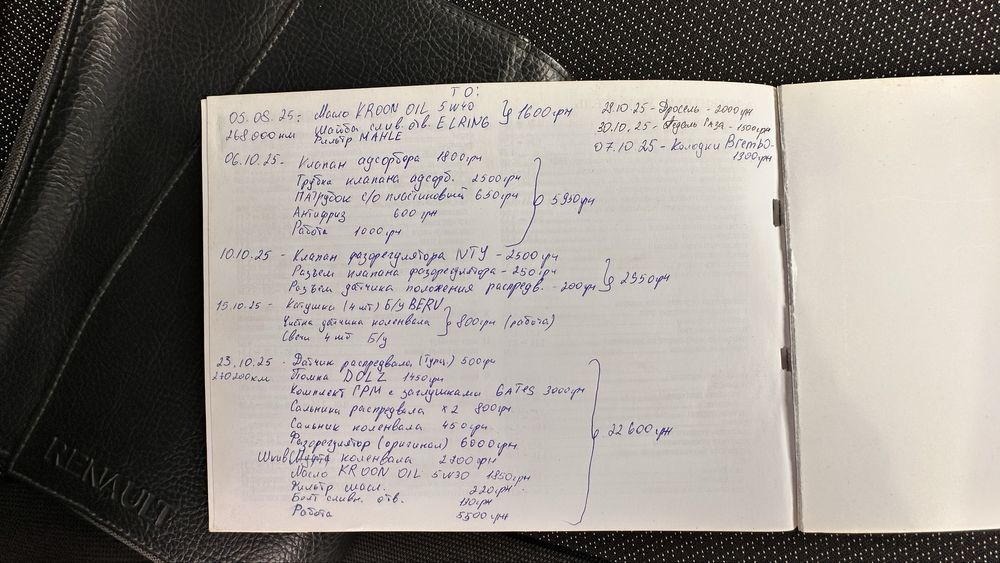 ТО:
05.08.25: Масло KROON OIL 5W40
268000км Шайба слив. отв. ELRING } 1600грн
Фильтр MAHLE
06.10.25 - Клапан адсорбора 1800грн
Трубка клапана адсорб. 2500грн
ПАтрубок с/о пластиковый 650грн
Антифриз 600грн } 5950грн
Работа 1000грн
10.10.25 - Клапан фазорегулятора NTY - 2500грн
Разъем клапана фазорегулятора - 250грн
Разъем датчика положения распредв. - 200грн } 2950грн
15.10.25 - Катушки (4 шт) Б/у BERU
Чистка датчика коленвала } 800грн (работа)
Свечи 4 шт Б/у
23.10.25 - Датчик распредвала (Турц) 500грн
270200км Помпа DOLZ 1450грн
Комплект ГРМ с заглушками GATES 3000грн
Сальника распредвала х2 800грн
Сальник коленвала 450грн
Фазорегулятор (оригинал) 6000грн } 22600грн
Шкив коленвала 2700грн
Масло KROON OIL 5W30 1850грн
Фильтр масл. 220грн
Болт сливн. отв. 130грн
Работа 5500грн
29.10.25 - Дросель - 2000грн
30.10.25 - Педаль Газа - 1500грн
07.10.25 - Колодки Brembo -
1300грн
RENAULT